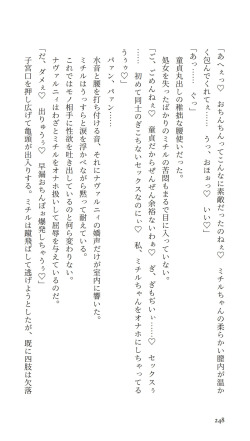 「あへぇっ♡　おちんちんってこんなに素敵だったのねぇ♡　ミチルちゃんの柔らかい膣内が温か
く包んでくれてぇっ……　うっ、おほぉっ♡　いい♡」
「あっ……　ぐっ」
童貞丸出しの稚拙な腰使いだった。
処女を失ったばかりのミチルの苦悶もまるで目に入っていない。
「ご、ごめんねぇ♡　童貞だからぜんぜん余裕ないわぁ♡　ぎ、ぎもぢいぃ……♡　セックスぅ
……　初めて同士のぎこちないセックスなのにぃ♡　私、ミチルちゃんをオナホにしちゃってる
うぅぅ♡」
パァン、パァン……
水音と腰を打ち付ける音、それにナヴァルニィの嬌声だけが室内に響いた。
ミチルはうっすらと涙を浮かべながら黙って耐えている。
これではモノ相手に性欲を吐き出しているのと何ら変わりない。
ナヴァルニィはわざとミチルをオナホ扱いして屈辱を与えているのだ。
「だ、ダメぇ♡　出りゅぅぅっ♡　早漏おちんぽぉ爆発しちゃぅぅっ♡」
子宮口を押し広げて亀頭が出入りする。ミチルは蹴飛ばして逃げようとしたが、既に四肢は欠落
248